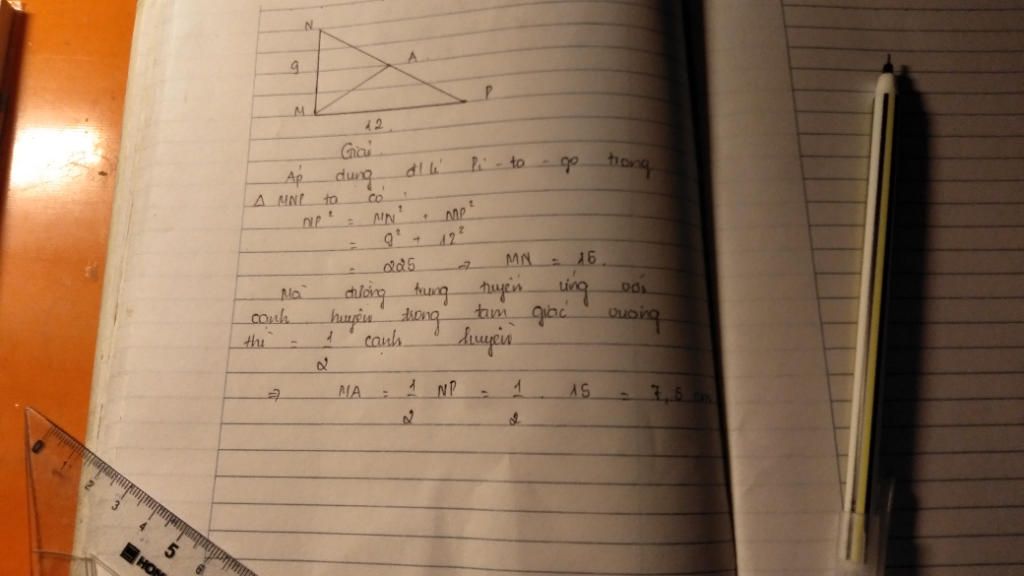 N
9
A
M
P
12
Giải
Áp dụng đ/lí Pi-ta-go trong
Δ MNP ta có:
NP² = MN² + MP²
= 9² + 12²
= 225 ⇒ MN = 15.
Mà đường trung tuyến ứng với
cạnh huyền trong tam giác vuông
thì = 1/2 cạnh huyền
⇒ MA = 1/2 NP = 1/2 . 15 = 7,5 cm
0 1 2 3 4 5 6